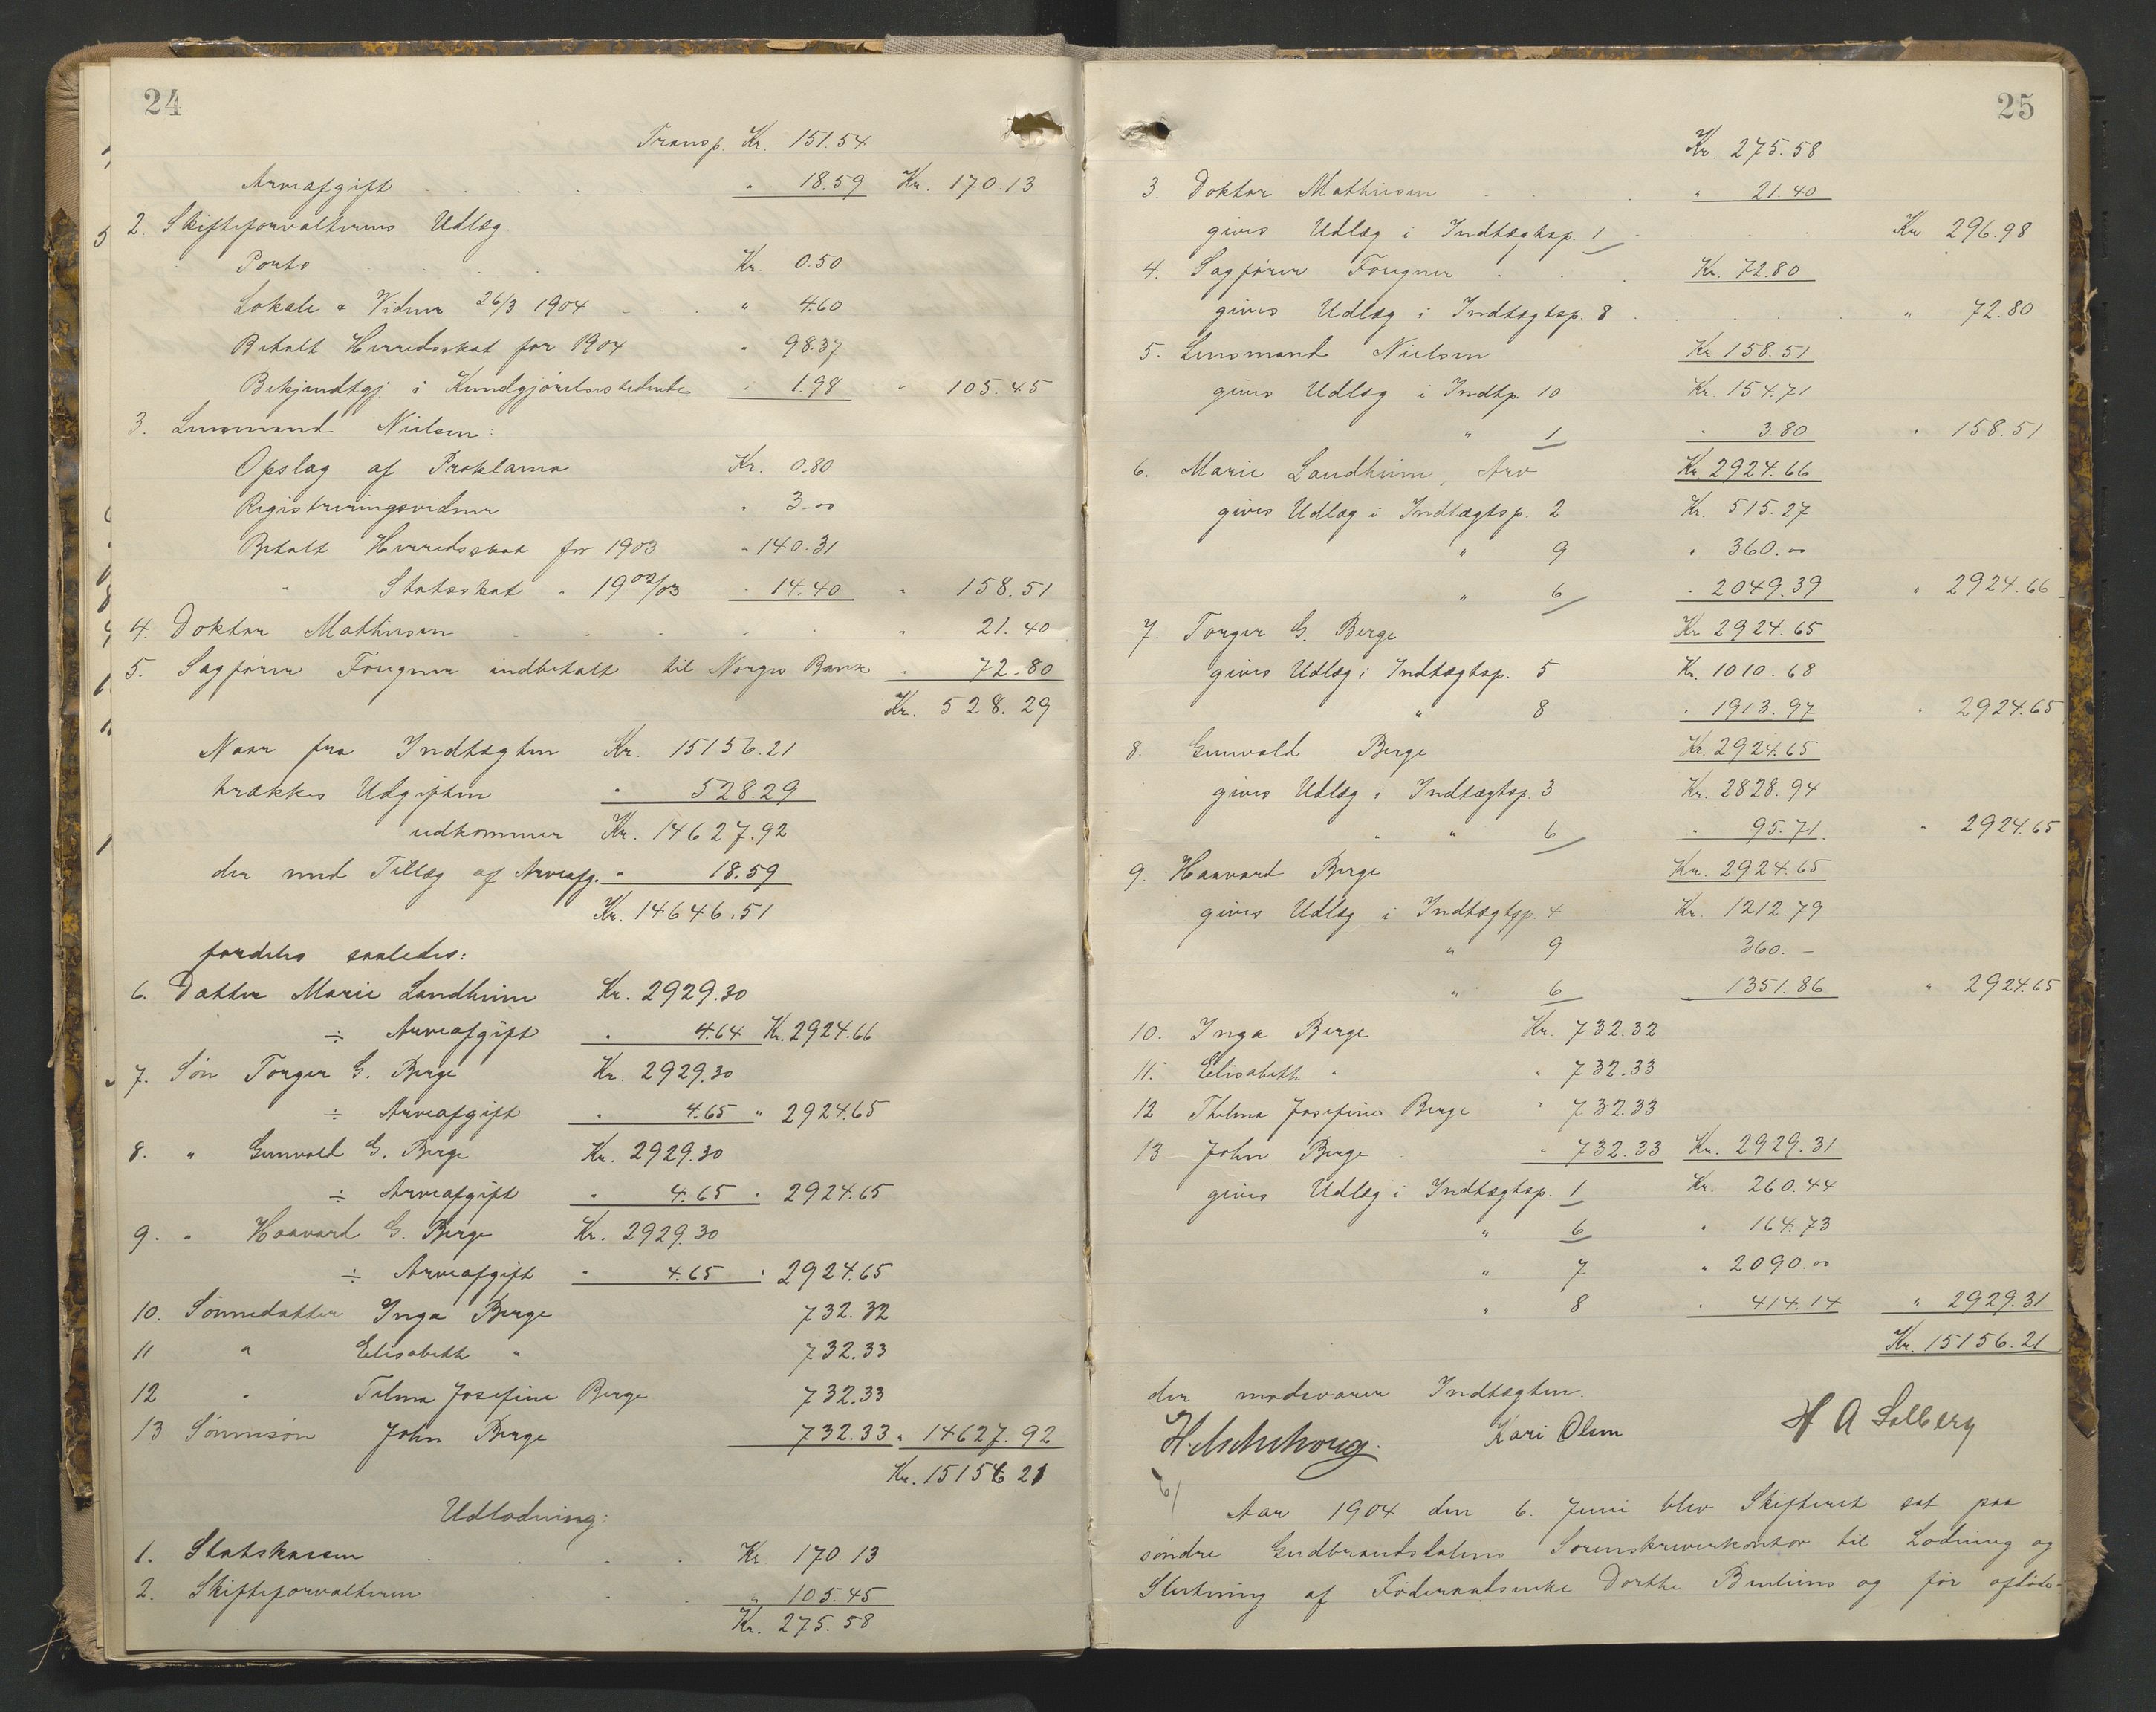 24
Transp. Kr. 151.54
Arveafgift . . . . " 18.59 Kr. 170.13
2. Skifteforvalterens Udlæg
Porto . . . . Kr. 0.50
Lokale & Vidner 26/3 1904 . . . " 4.60
Betalt Herredsskat for 1904 " 98.37
Bekjendtgj. i Kundgjørelsestidende " 1.98 " 105.45
3. Lensmand Nielsen:
Opslag af Proklama Kr. 0.80
Registreringsvidner " 3.00
Betalt Herredsskat for 1903 " 140.31
" Statsskat " 1902/03 " 14.40 " 158.51
4. Doktor Mathiesen . . . . . " 21.40
5. Sagfører Fougner indbetalt til Norges Bank " 72.80
Kr. 528.29
Naar fra Indtægten Kr. 15156.21
trækkes Udgiften " 528.29
udkommer Kr. 14627.92
der med Tillæg af Arveafg. " 18.59
Kr. 14646.51
fordeles saaledes:
6. Datter Marie Landheim Kr. 2929.30
÷ Arveafgift " 4.64 Kr. 2924.66
7. Søn Torger G. Berge Kr. 2929.30
÷ Arveafgift " 4.65 " 2924.65
8. " Gunvald G. Berge Kr. 2929.30
÷ Arveafgift " 4.65 " 2924.65
9. " Haavard G. Berge Kr. 2929.30
÷ Arveafgift " 4.65 " 2924.65
10. Sønnedatter Inga Berge 732.32
11 " Elisabeth " 732.33
12 " Telma Josefine Berge 732.33
13 Sønnesøn John Berge 732.33 " 14627.92
Kr. 15156.21
Udlodning:
1. Statskassen . . . . Kr 170.13
2. Skifteforvalteren . . . " 105.45
Kr. 275.58
25
Kr. 275.58
3. Doktor Mathiesen . . . " 21.40
gives Udlæg i Indtægtsp. 1 . . . Kr 296.98
4. Sagfører Fougner . . . Kr. 72.80
gives Udlæg i Indtægtsp. 8 . . . . " 72.80
5. Lensmand Nielsen Kr. 158.51
gives Udlæg i Indtp. 10 Kr. 154.71
" 1 " 3.80 " 158.51
6. Marie Landheim, Arv Kr 2924.66
gives Udlæg i Indtægtsp. 2 Kr. 515.27
" 9 " 360.00
" 6 " 2049.39 " 2924.66
7. Torger G. Berge Kr 2924.65
gives Udlæg i Indtægtsp. 5 Kr. 1010.68
" 8 " 1913.97 " 2924.65
8. Gunvald Berge Kr. 2924.65
gives Udlæg i Indtægtsp. 3 Kr. 2828.94
" " 6 " 95.71 " 2924.65
9. Haavard Berge Kr. 2924.65
gives Udlæg i Indtægtsp. 4 Kr. 1212.79
" 9 360.–
" 6 1351.86 " 2924.65
10. Inga Berge Kr. 732.32
11. Elisabeth " " 732.33
12 Thelma Josefine Berge " 732.33
13 John Berge . " 732.33 Kr. 2929.31
gives Udlæg i Indtægtsp. 1 Kr. 260.44
" 6 " 164.73
" 7 " 2090.00
" 8 " 414.14 " 2929.31
Kr. 15156.21
der modsvarer Indtægten.
Kari Olsen H A Solberg
Aar 1904 den 6. Juni blev Skifteret sat paa
søndre Gudbrandsdalens Sorenskriverkontor til Lodning og
Slutning af Føderaadsenke Dorthe og før afdøde